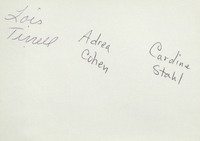 Lois
Tirrell
Adrea
Cohen
Cardine
Stahl